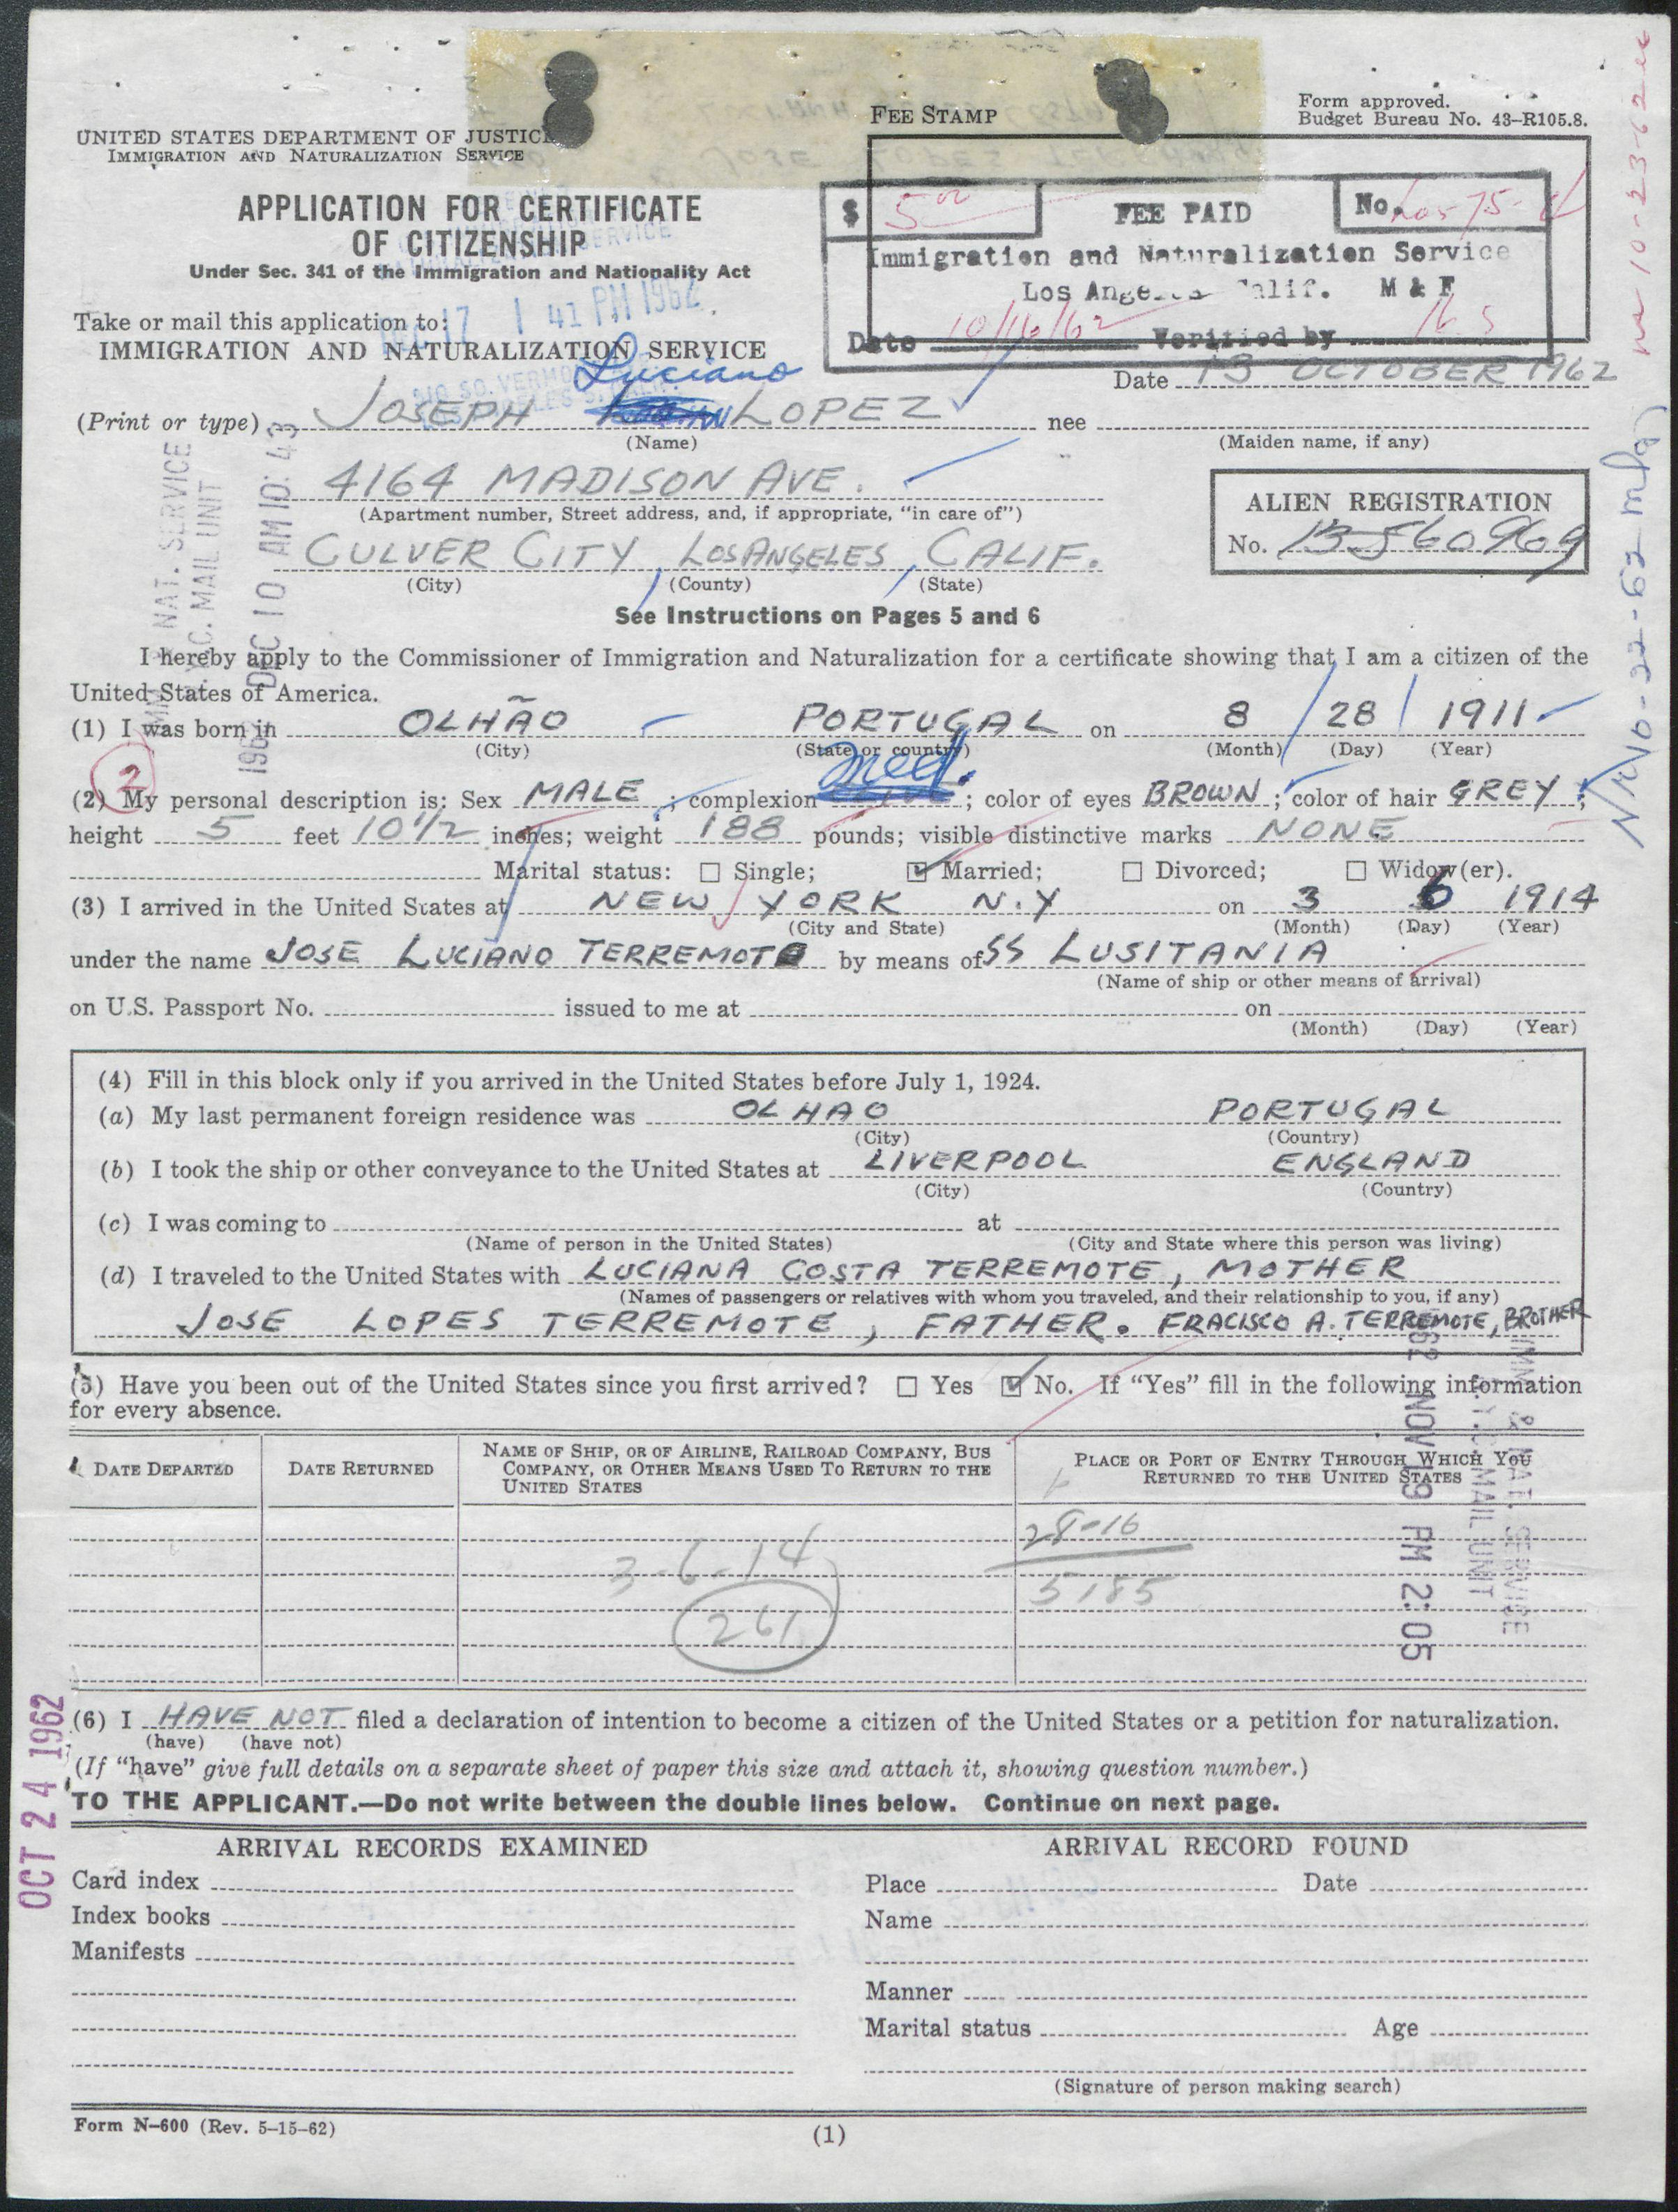 UNITED STATES DEPARTMENT OF JUSTICE
IMMIGRATION AND NATURALIZATION SERVICE
FEE STAMP
Form approved.
Budget Bureau No. 43–R105.8.
APPLICATION FOR CERTIFICATE
OF CITIZENSHIP
Under Sec. 341 of the Immigration and Nationality Act
$ 5 00 FEE PAID No.
Immigration and Naturalization Service
Los Angeles Calif. M & F
Date 10/16/62 Verified by
DEC 17 1 41 PM 1962
Take or mail this application to:
IMMIGRATION AND NATURALIZATION SERVICE
Date 13 OCTOBER 1962
Luciano
(Print or type) JOSEPH LOPEZ nee
(Name) (Maiden name, if any)
4164 MADISON AVE.
(Apartment number, Street address, and, if appropriate, “in care of”)
ALIEN REGISTRATION
No. 13560969
CULVER CITY, LOS ANGELES, CALIF.
(City) (County) (State)
See Instructions on Pages 5 and 6
I hereby apply to the Commissioner of Immigration and Naturalization for a certificate showing that I am a citizen of the
United States of America.
(1) I was born in OLHÃO PORTUGAL on 8 / 28 / 1911
(City) (State or country) (Month) (Day) (Year)
2
med.
(2) My personal description is: Sex MALE; complexion ; color of eyes BROWN; color of hair GREY;
height 5 feet 10 1/2 inches; weight 188 pounds; visible distinctive marks NONE
Marital status: ☐ Single; ☑ Married; ☐ Divorced; ☐ Widow(er).
(3) I arrived in the United States at NEW YORK N.Y on 3 6 1914
(City and State) (Month) (Day) (Year)
under the name JOSE LUCIANO TERREMOTE by means of SS LUSITANIA
(Name of ship or other means of arrival)
on U.S. Passport No. issued to me at on
(Month) (Day) (Year)
(4) Fill in this block only if you arrived in the United States before July 1, 1924.
(a) My last permanent foreign residence was OLHAO PORTUGAL
(City) (Country)
(b) I took the ship or other conveyance to the United States at LIVERPOOL ENGLAND
(City) (Country)
(c) I was coming to at
(Name of person in the United States) (City and State where this person was living)
(d) I traveled to the United States with LUCIANA COSTA TERREMOTE, MOTHER
(Names of passengers or relatives with whom you traveled, and their relationship to you, if any)
JOSE LOPES TERREMOTE, FATHER. FRACISCO A. TERREMOTE, BROTHER
(5) Have you been out of the United States since you first arrived? ☐ Yes ☑ No. If “Yes” fill in the following information
for every absence.
DATE DEPARTED
DATE RETURNED
NAME OF SHIP, OR OF AIRLINE, RAILROAD COMPANY, BUS
COMPANY, OR OTHER MEANS USED TO RETURN TO THE
UNITED STATES
PLACE OR PORT OF ENTRY THROUGH WHICH YOU
RETURNED TO THE UNITED STATES
28-16
3-6-14
5185
261
(6) I HAVE NOT filed a declaration of intention to become a citizen of the United States or a petition for naturalization.
(have) (have not)
(If “have” give full details on a separate sheet of paper this size and attach it, showing question number.)
TO THE APPLICANT.—Do not write between the double lines below. Continue on next page.
ARRIVAL RECORDS EXAMINED
Card index
Index books
Manifests
ARRIVAL RECORD FOUND
Place Date
Name
Manner
Marital status Age
(Signature of person making search)
Form N–600 (Rev. 5–15–62)
(1)
NAT. SERVICE
MAIL UNIT
1962 DEC 10 AM 10:43
1962 NOV 19 PM 2:05
IMM & NAT. SERVICE
MAIL UNIT
OCT 24 1962
10-23-62